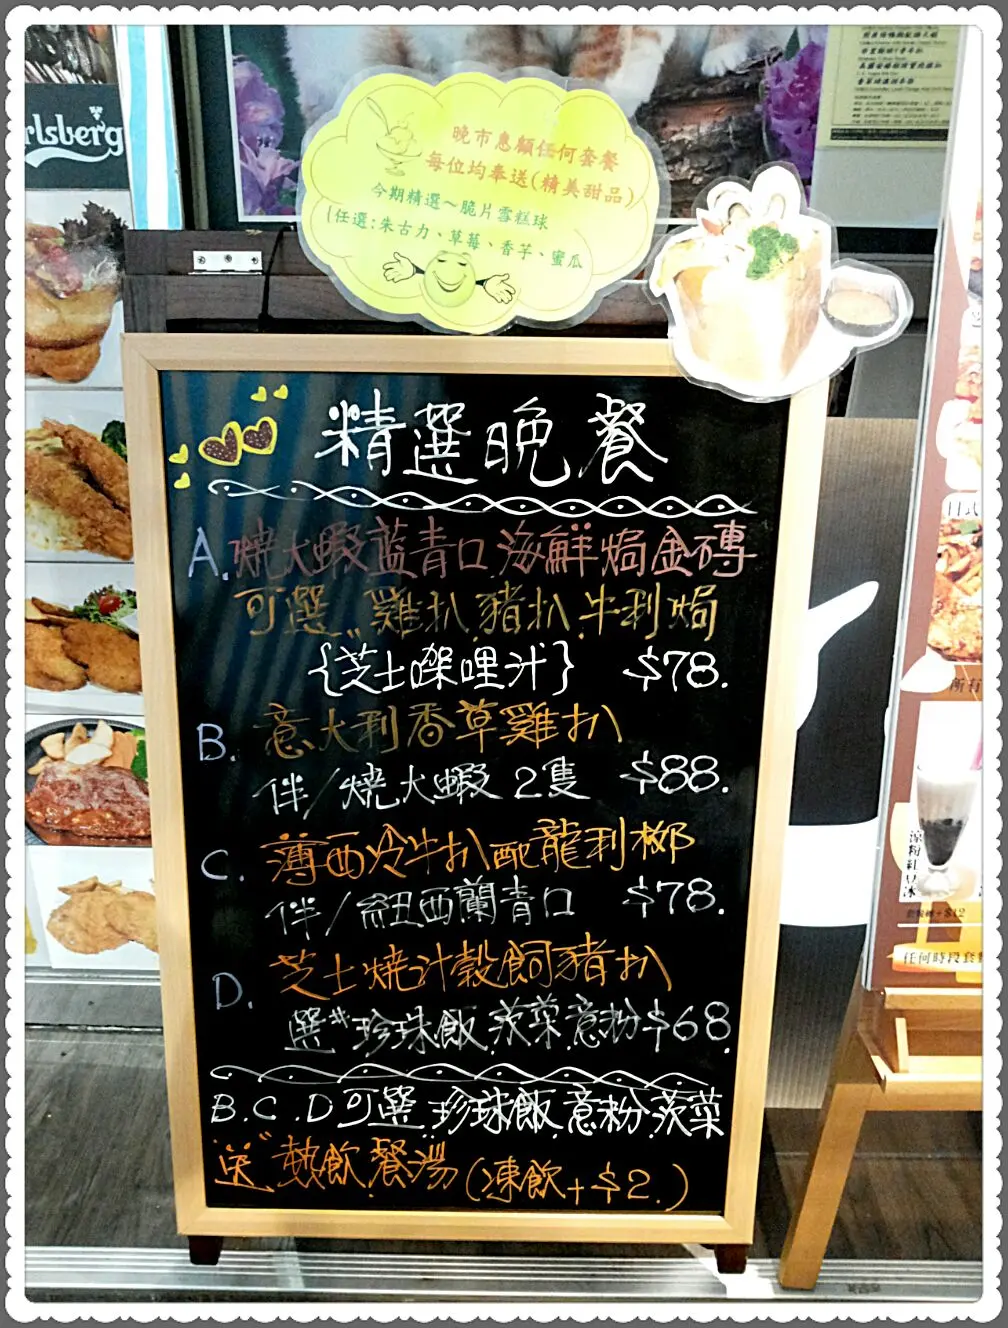 rlsberg
晚市惠顧任何套餐
每位均奉送(精美甜品)
今期精選～脆片雪糕球
(任選:朱古力、草莓、香芋、蜜瓜
精選晚餐
A. 燒大蝦蓝青口海鮮焗金磚
可選"雞扒.豬扒.牛利焗
{芝士㗎哩汁} $78.
B. 意大利香草雞扒
伴/燒大蝦2隻 $88.
C. 薄西冷牛扒配龍利柳
伴/紐西蘭青口 $78.
D. 芝士燒汁穀飼豬扒
選"珍珠飯.茨菜.意粉$68.
B.C.D可選.珍珠飯.意粉.茨菜
送"熱飲.餐湯(凍飲+$2.)
日式
所有
涼粉紅豆冰
套餐轉+$12
任何時段套餐